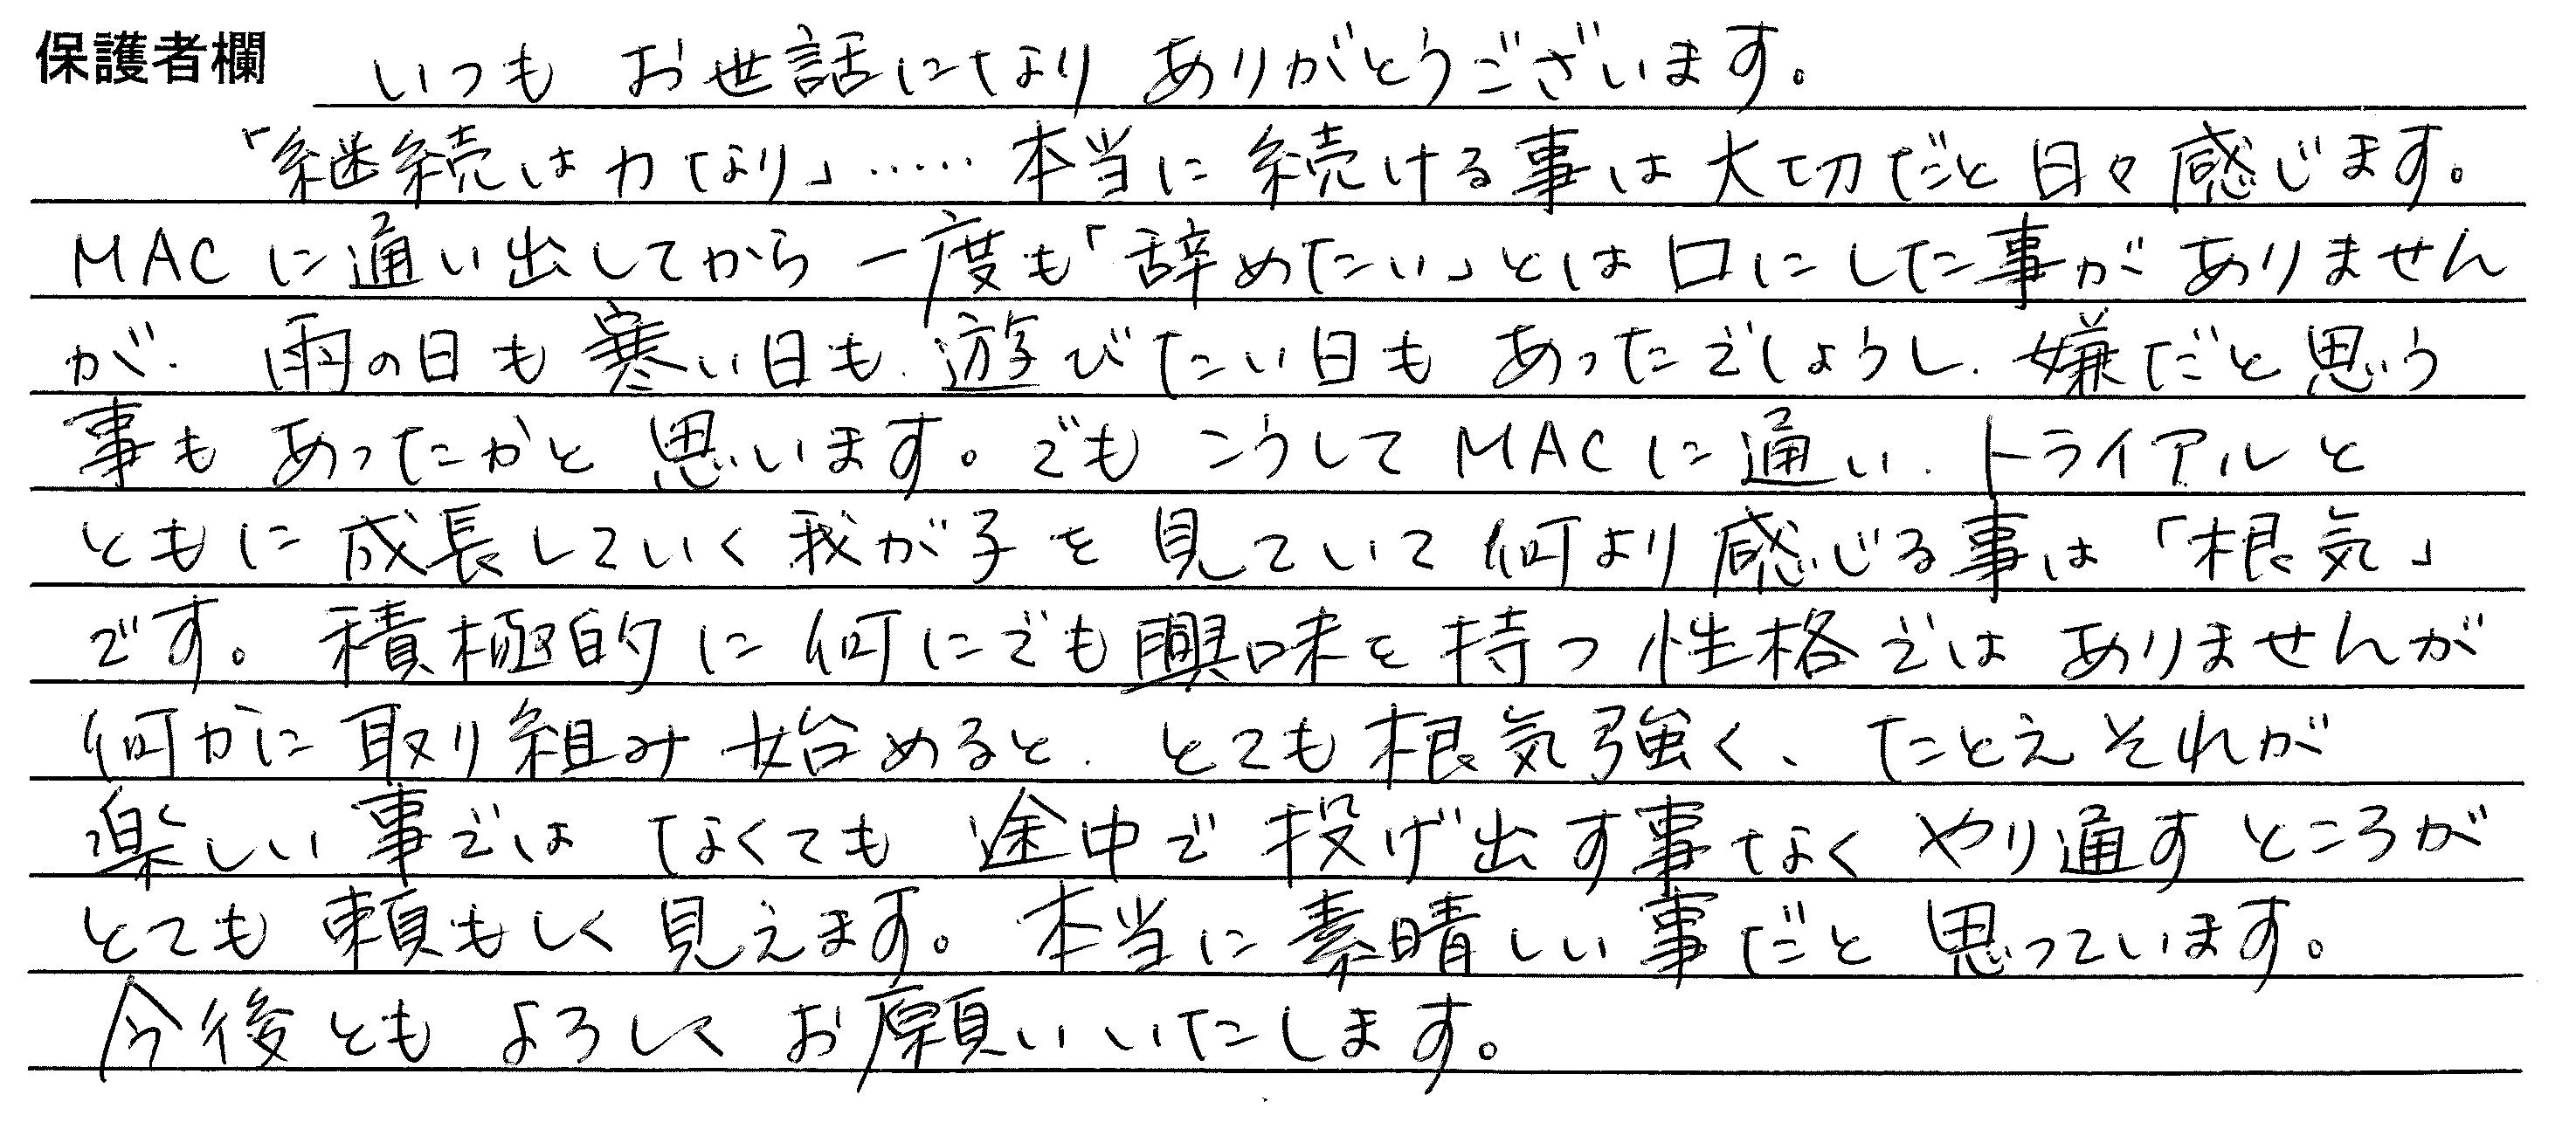 保護者欄 いつも お世話になり ありがとうございます。
「継続は力なり」‥‥‥ 本当に 続ける事は 大切だと 日々 感じます。
MACに通い出してから 一度も「辞めたい」とは 口にした事が ありません
が. 雨の日も 寒い日も. 遊びたい日も あったでしょうし. 嫌だと思う
事も あったかと 思います。でも こうして MACに通い. トライアルと
ともに 成長していく 我が子を 見ていて 何より 感じる事は 「根気」
です。 積極的に 何にでも 興味を 持つ 性格では ありませんが
何かに 取り組み 始めると. とても 根気強く、 たとえ それが
楽しい 事では なくても 途中で 投げ出す事なく やり通す ところが
とても 頼もしく 見えます。 本当に 素晴しい 事だと 思っています。
今後とも よろしく お願いいたします。